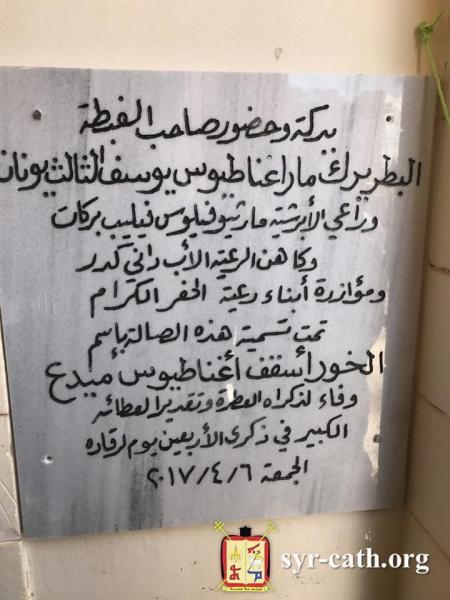 ببركة وحضور صاحب الغبطة
البطريرك مار اغناطيوس يوسف الثالث يونان
وراعي الأبرشية مار ثيوفيلوس فيليب بركات
وكاهن الرعية الأب داني كدر
ومؤازرة أبناء رعية الحفر الكرام
تمت تسمية هذه الصالة بإسم
الخورأسقف أغناطيوس ميدع
وفاء لذكراه العطرة وتقديرا لعطائه
الكبير في ذكرى الأربعين يوم لرقاده
الجمعة ٢٠١٧/٤/٦
syr-cath.org